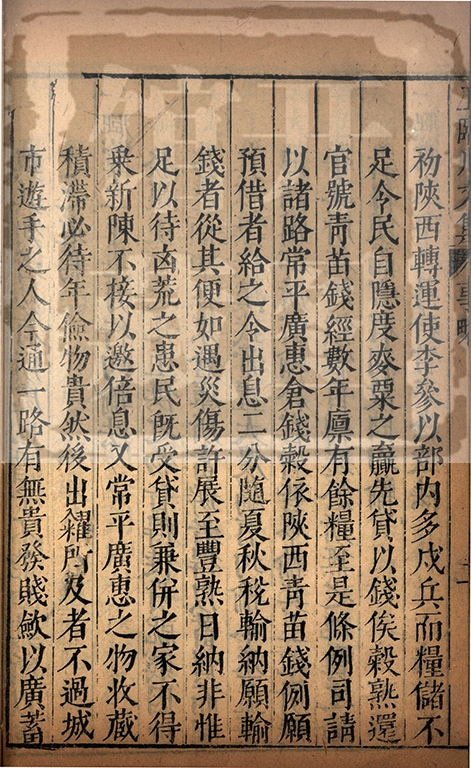 初陝西轉運使李參以部內多戍兵而糧儲不
足令民自隱度麥粟之贏先貸以錢俟穀熟還
官號靑苗錢經數年廩有餘糧至是條例司請
以諸路常平廣惠倉錢穀依陝西靑苗錢例願
預借者給之令出息二分隨夏秋稅輸納願輸
錢者從其便如遇災傷許展至豐熟日納非惟
足以待凶荒之患民旣受貸則兼併之家不得
乗新陳不接以邀倍息又常平廣惠之物收藏
積滯必待年儉物貴然後出糴所及者不過城
市遊手之人今通一路有無貴發賤斂以廣蓄